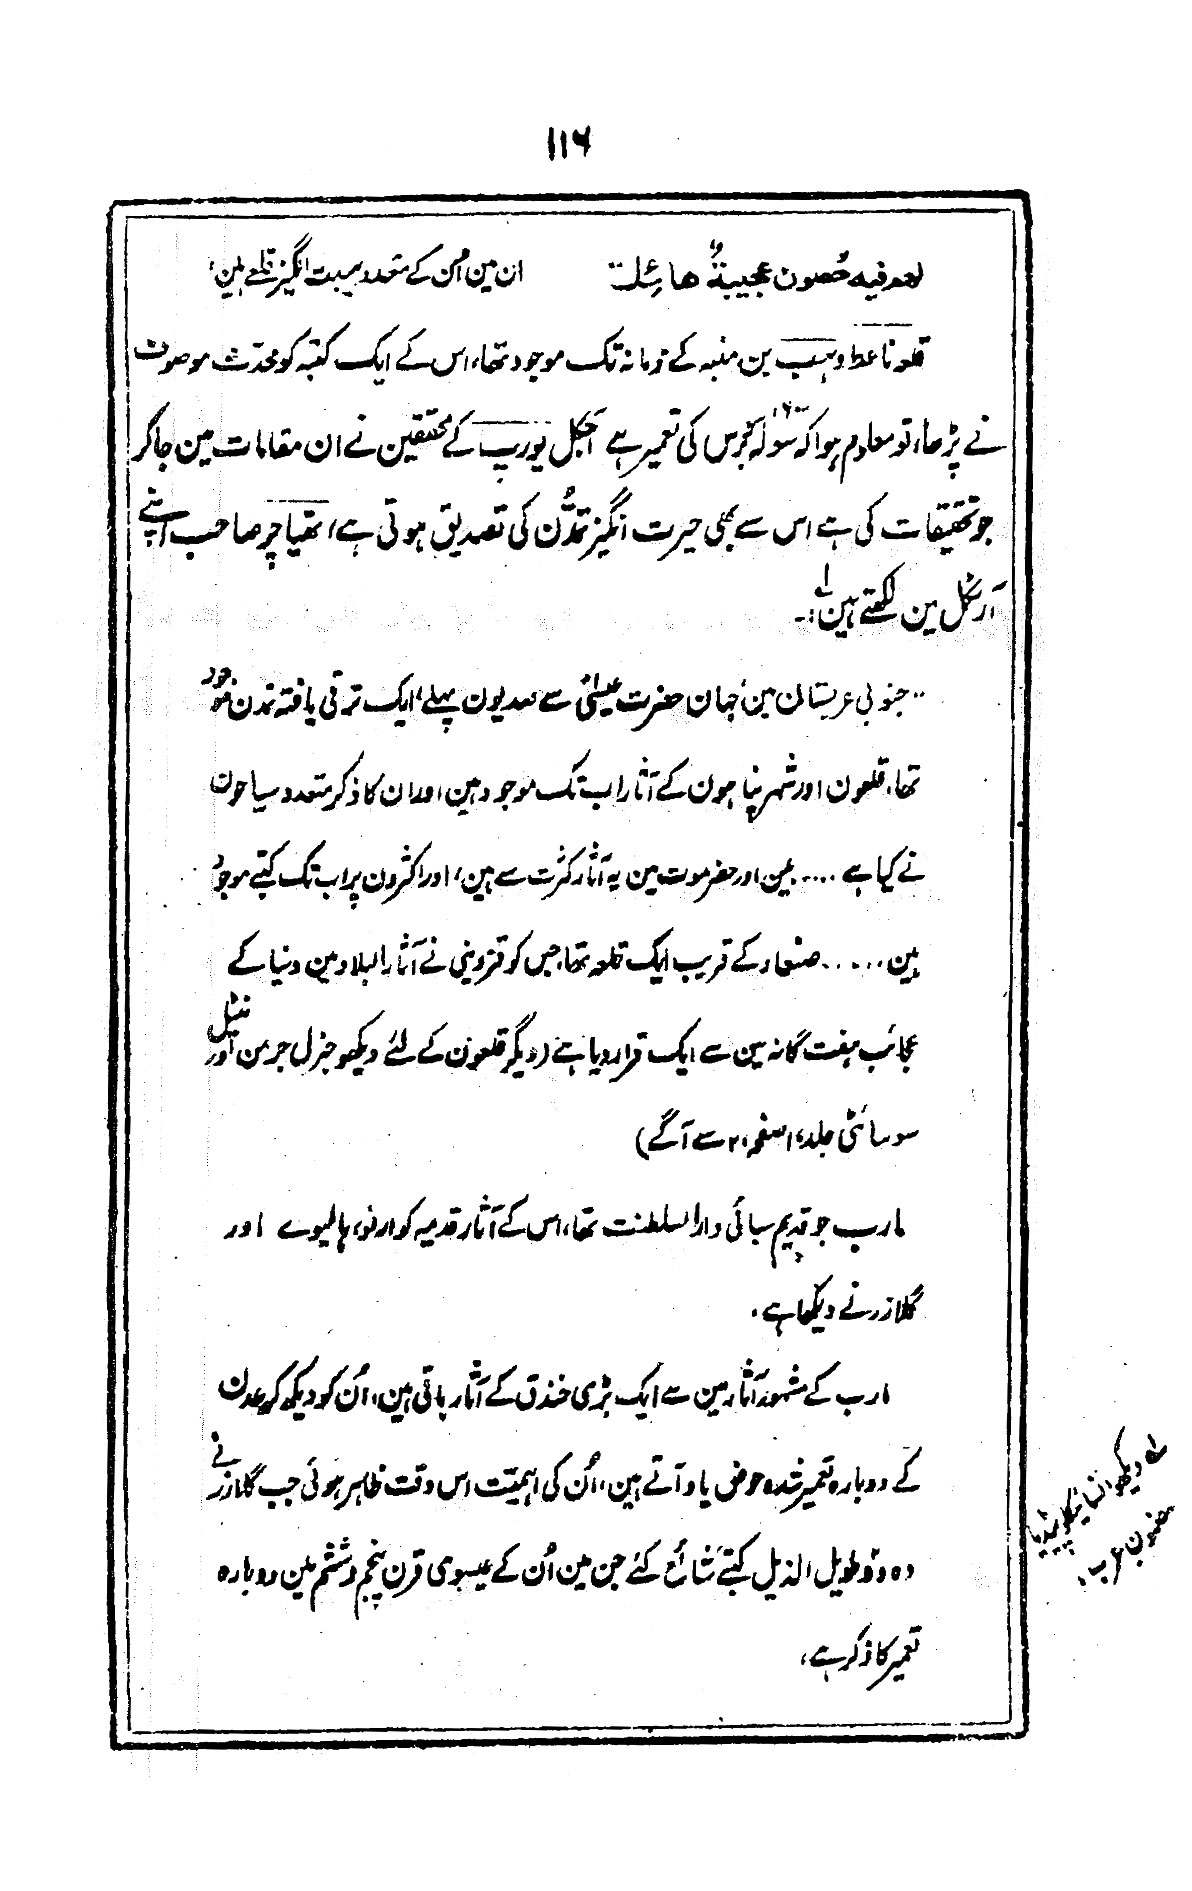 ۱۱۶
لھم فیہ حصون عجیبۃٌ ھائلۃ ان مین امن کے متعدد ہیبت انگیز قلعے ہین،
قلعہ ناعط وہب بن منبہ کے زمانہ تک موجود تھا، اس کے ایک کتبہ کو محدّث موصوف
نے پڑھا، تو معلوم ہوا کہ سولہ ۱۶۰۰ برس کی تعمیر ہے آجکل یورپ کے محققین نے ان مقامات مین جا کر
جو تحقیقات کی ہے اس سے بھی حیرت انگیز تمدُّن کی تصدیق ہوتی ہے، تھیاچر صاحب اپنے
آرٹکل مین لکھتے ہین لہ:-
"جنوبی عربستان مین، جہان حضرت عیسیٰؑ سے صدیون پہلے، ایک ترقی یافتہ تمدن موجود
تھا، قلعون اور شہر پناہون کے آثار اب تک موجود ہین اور ان کا ذکر متعدد سیاحون
نے کیا ہے .... یمن اور حضرموت مین یہ آثار کثرت سے ہین، اور اکثرون پر اب تک کتبے موجود
ہین ..... صنعاء کے قریب ایک قلعہ تھا، جس کو قزوینی نے آثار البلاد مین دنیا کے
عجائب ہفت گانہ مین سے ایک قرار دیا ہے (دیگر قلعون کے لئے دیکھو جنرل جرمن اورنٹیل
سوسائٹی جلد ۱۰ صفحہ ۲۰ سے آگے)
مارب جو قدیم سبائی دارالسلطنت تھا، اس کے آثار قدیمہ کو ارنو، ہالیوے اور
گلازر نے دیکھا ہے،
مارب کے مشہور آثار مین سے ایک بڑی خندق کے آثار باقی ہین، اُن کو دیکھ کر عدن
کے دوبارہ تعمیر شدہ حوض یاد آتے ہین، اُن کی اہمیّت اس وقت ظاہر ہوئی جب گلازر نے
وہ دو طویل الذیل کتبے شائع کئے جن مین اُن کے عیسوی قرن پنجم و ششم مین دوبارہ
تعمیر کا ذکر ہے،
لہ دیکھو انسائیکلوپیڈیا
مضمون عرب،